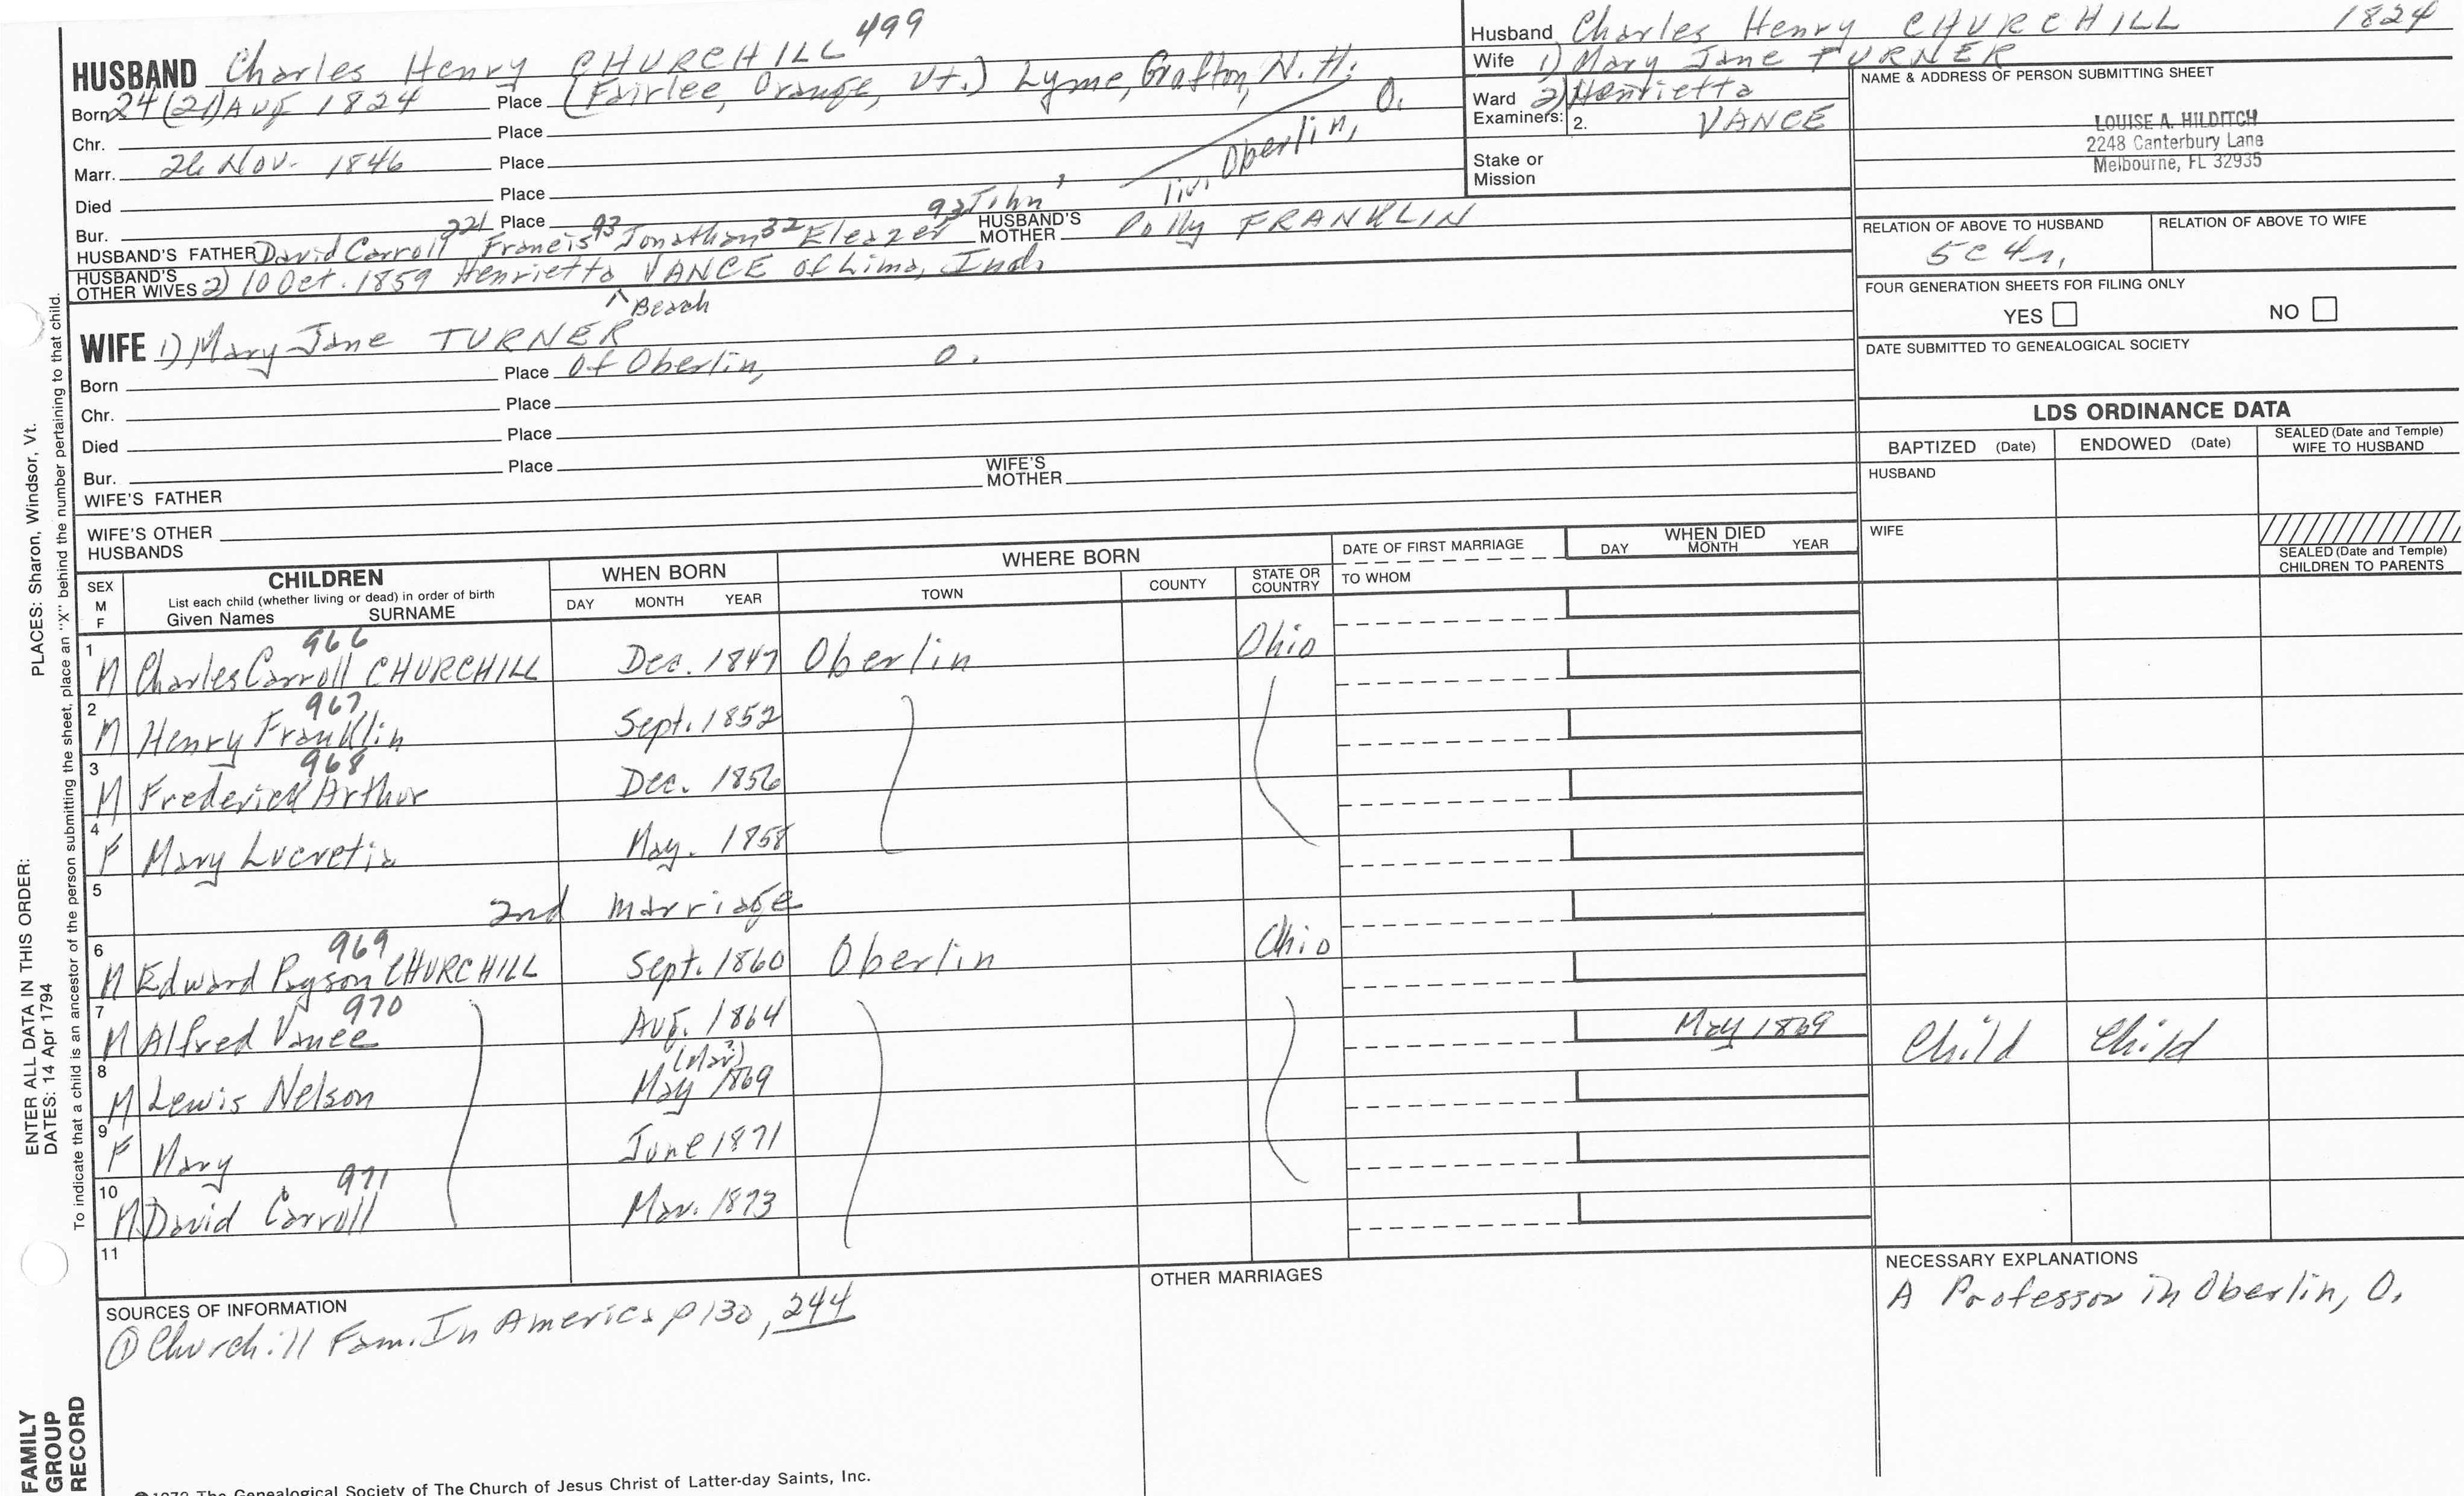 499
HUSBAND Charles Henry CHURCHILL
Born 24 (21) Aug 1824 Place (Fairlee, Orange, Vt.) Lyme, Grafton, N.H.
Chr. Place
Marr. 26 Nov. 1846 Place
Died Place
liv. Oberlin, O.
Bur. Place
HUSBAND'S FATHER David Carroll 221 Francis 93 Jonathan 32 Eleazer 9 2 John HUSBAND'S MOTHER Polly FRANKLIN
HUSBAND'S OTHER WIVES 2) 10 Oct. 1859 Henrietta VANCE of Lima, Ind.
^ Beach
WIFE 1) Mary Jane TURNER
Born Place of Oberlin, O.
Chr. Place
Died Place
Bur. Place
WIFE'S FATHER WIFE'S MOTHER
WIFE'S OTHER HUSBANDS
Husband Charles Henry CHURCHILL 1824
Wife 1) Mary Jane TURNER
Ward 2) Henrietta
Examiners: 2. VANCE
Stake or Mission
NAME & ADDRESS OF PERSON SUBMITTING SHEET
LOUISE A. HILDITCH
2248 Canterbury Lane
Melbourne, FL 32935
RELATION OF ABOVE TO HUSBAND RELATION OF ABOVE TO WIFE
5c 4r.
FOUR GENERATION SHEETS FOR FILING ONLY
YES NO
DATE SUBMITTED TO GENEALOGICAL SOCIETY
LDS ORDINANCE DATA
BAPTIZED (Date) ENDOWED (Date) SEALED (Date and Temple) WIFE TO HUSBAND
HUSBAND
WIFE
SEALED (Date and Temple) CHILDREN TO PARENTS
SEX M F CHILDREN WHEN BORN WHERE BORN DATE OF FIRST MARRIAGE WHEN DIED
List each child (whether living or dead) in order of birth
Given Names SURNAME DAY MONTH YEAR TOWN COUNTY STATE OR COUNTRY TO WHOM DAY MONTH YEAR
966
1 M Charles Carroll CHURCHILL Dec. 1847 Oberlin Ohio
967
2 M Henry Franklin Sept. 1852
968
3 M Frederick Arthur Dec. 1856
4 F Mary Lucretia May. 1858
5 2nd marriage
969
6 M Edward Payson CHURCHILL Sept. 1860 Oberlin Ohio
970
7 M Alfred Vance Aug. 1864 May 1869 Child Child
(Mar?)
8 M Lewis Nelson May 1869
9 F Mary June 1871
971
10 M David Carroll Mar. 1873
11
SOURCES OF INFORMATION
① Churchill Fam. In America p 130, 244
OTHER MARRIAGES
NECESSARY EXPLANATIONS
A Professor in Oberlin, O.
The Genealogical Society of The Church of Jesus Christ of Latter-day Saints, Inc.
FAMILY GROUP RECORD
ENTER ALL DATA IN THIS ORDER:
DATES: 14 Apr 1794
PLACES: Sharon, Windsor, Vt.
To indicate that a child is an ancestor of the person submitting the sheet, place an "X" behind the number pertaining to that child.